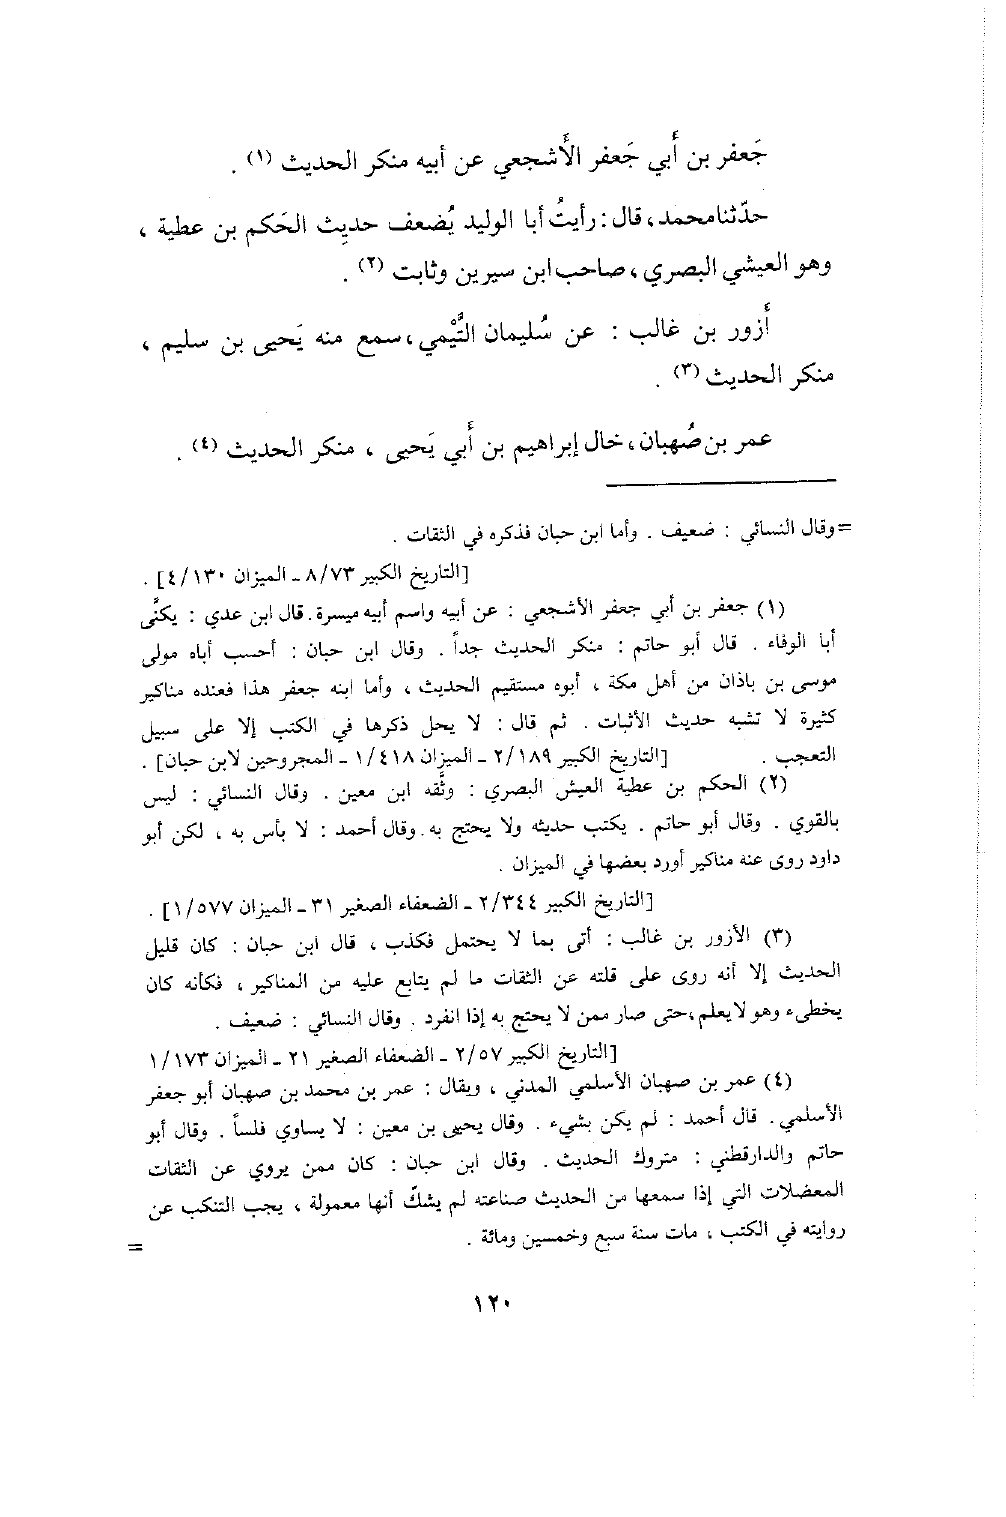 جَعفر بن أَبي جَعفر الأَشجعي عن أبيه منكر الحديث (١) .
حدّثنا محمد ، قال : رأيتُ أبا الوليد يُضعف حديِث الحَكم بن عطية ،
وهو العيشي البصري ، صاحب ابن سيرين وثابت (٢) .
أَزور بن غالب : عن سُليمان التَّيْمي ، سمع منه يَحيى بن سليم ،
منكر الحديث (٣) .
عمر بن صُهبان ، خال إبراهيم بن أَبي يَحيى ، منكر الحديث (٤) .
= وقال النسائي : ضعيف . وأما ابن حبان فذكره في الثقات .
[التاريخ الكبير ٨/٧٣ ـ الميزان ٤/١٣٠] .
(١) جعفر بن أبي جعفر الأشجعي : عن أبيه واسم أبيه ميسرة . قال ابن عدي : يكنَّى
أبا الوفاء . قال أبو حاتم : منكر الحديث جداً . وقال ابن حبان : أحسب أباه مولى
موسى بن باذان من أهل مكة ، أبوه مستقيم الحديث ، وأما ابنه جعفر هذا فعنده مناكير
كثيرة لا تشبه حديث الأثبات . ثم قال : لا يحل ذكرها في الكتب إلا على سبيل
التعجب . [التاريخ الكبير ٢/١٨٩ ـ الميزان ١/٤١٨ ـ المجروحين لابن حبان] .
(٢) الحكم بن عطية العيش البصري : وثَّقه ابن معين . وقال النسائي : ليس
بالقوي . وقال أبو حاتم . يكتب حديثه ولا يحتج به . وقال أحمد : لا بأس به ، لكن أبو
داود روى عنه مناكير أورد بعضها في الميزان .
[التاريخ الكبير ٢/٣٤٤ ـ الضعفاء الصغير ٣١ ـ الميزان ١/٥٧٧] .
(٣) الأزور بن غالب : أتى بما لا يحتمل فكذب ، قال ابن حبان : كان قليل
الحديث إلا أنه روى على قلته عن الثقات ما لم يتابع عليه من المناكير ، فكأنه كان
يخطىء وهو لا يعلم ، حتى صار ممن لا يحتج به إذا انفرد . وقال النسائي : ضعيف .
[التاريخ الكبير ٢/٥٧ ـ الضعفاء الصغير ٢١ ـ الميزان ١/١٧٣
(٤) عمر بن صهبان الأسلمي المدني ، ويقال : عمر بن محمد بن صهبان أبو جعفر
الأسلمي . قال أحمد : لم يكن بشيء . وقال يحيى بن معين : لا يساوي فلساً . وقال أبو
حاتم والدارقطني : متروك الحديث . وقال ابن حبان : كان ممن يروي عن الثقات
المعضلات التي إذا سمعها من الحديث صناعته لم يشكّ أنها معمولة ، يجب التنكب عن
روايته في الكتب ، مات سنة سبع وخمسين ومائة . =
١٢٠